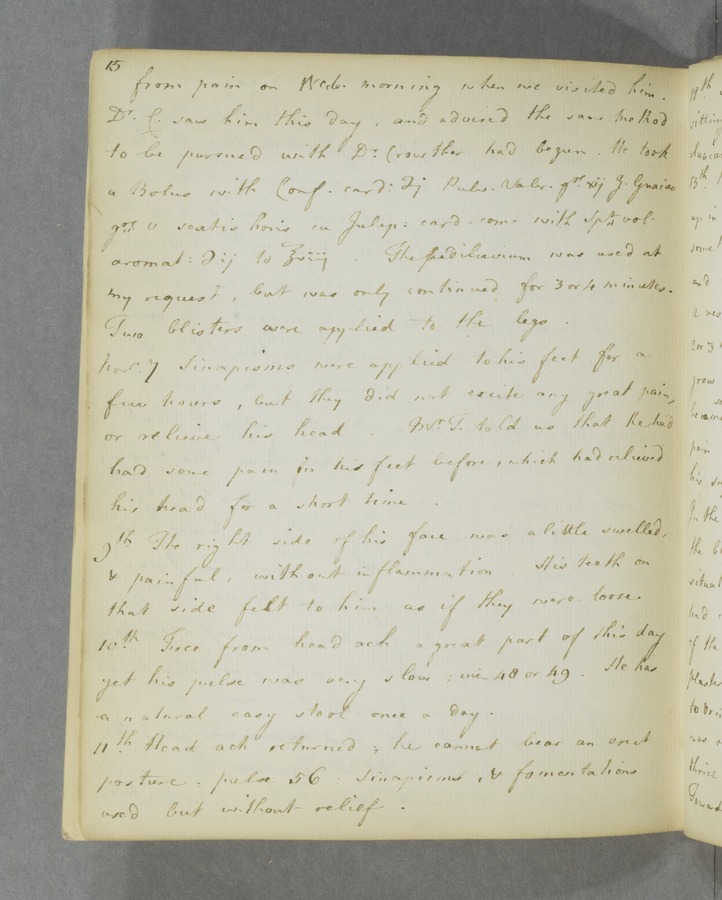 15
from pain on Wed. morning when we visited him.
Dr. C. saw him this day, and advised the same method
to be pursued with Dr. Crowther had begun. He took
a Bolus with Conf. card: ʒj Pulv. Valer. grs. xij G. Guaiac
grs. v sextis horis cu Julep: card. com with Spts vol.
aromat: to ℥viij. The pediluvium was used at
my request, but was only continued for 3 or 4 minutes.
Two blisters were applied to the legs.
Nov. 7 Sinapisms were applied to his feet for a
few hours, but they did not excite any great pain,
or relieve his head. Mr. T. told us that he had
had some pain in his feet before, which had relieved
his head for a short time.
9th The right side of his face was a little swelled,
& painful, without inflammation. His teeth on
that side felt to him as if they were loose.
10th Free from head ach a great part of this day
yet his pulse was very slow; viz 48 or 49. He has
a natural easy stool once a day.
11th Head ach returned; he cannot bear an erect
posture. pulse 56. Sinapisms, & fomentations
used but without relief.
12th
sittin
13th
up in
some
and
2 or 3
grew
pain
his
In the
the
situat
had
of the
plaster
was
thrice
Toward